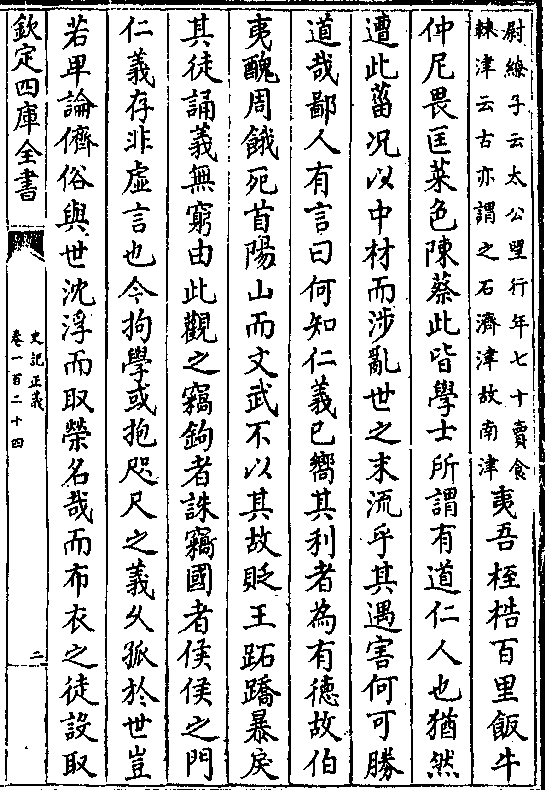 尉繚子云太公望行年七十賣食
棘津云古亦謂之石濟津故南津
夷吾桎梏百里飯牛
仲尼畏匡菜色陳蔡此皆學士所謂有道仁人也猶然
遭此菑況以中材而涉亂世之末流乎其遇害何可勝
道哉鄙人有言曰何知仁義已嚮其利者為有德故伯
夷醜周餓死首陽山而文武不以其故貶王跖蹻暴戾
其徒誦義無窮由此觀之竊鉤者誅竊國者侯侯之門
仁義存非虛言也今拘學或抱咫尺之義久孤於世豈
若卑論儕俗與世沈浮而取榮名哉而布衣之徒設取
欽定四庫全書
史記正義
卷一百二十四
二